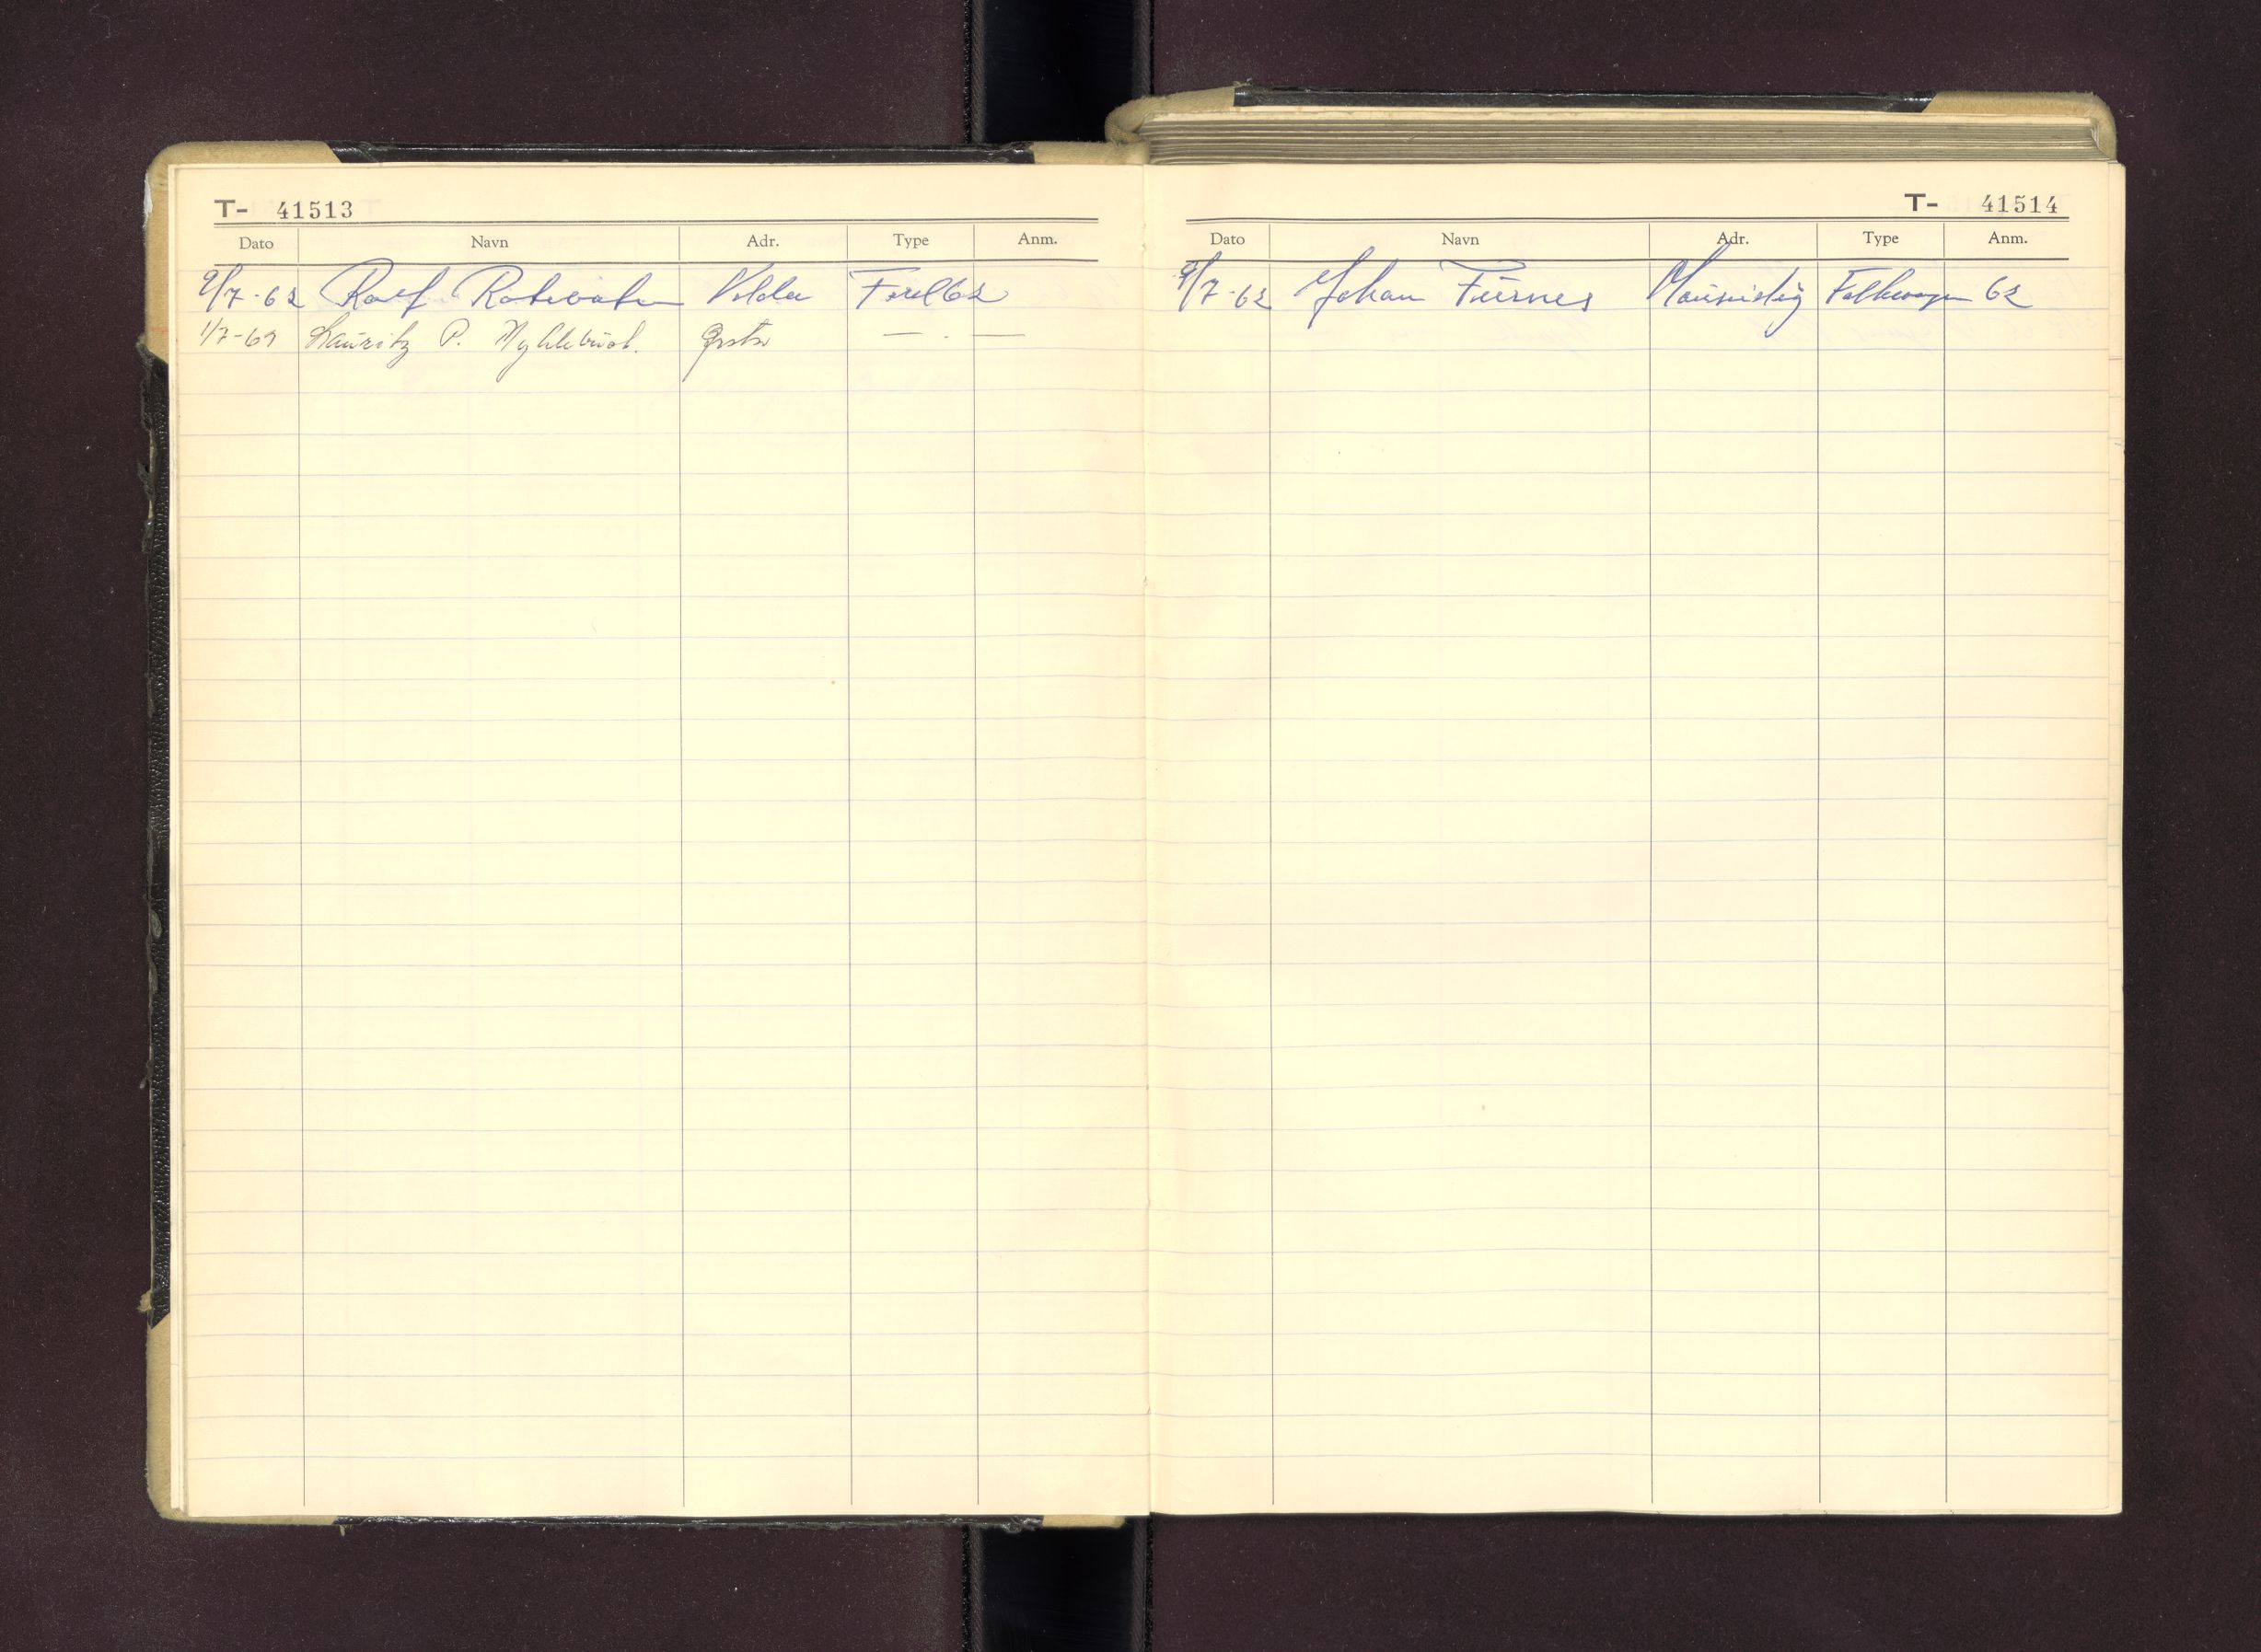 T- 41513
Dato Navn Adr. Type Anm.
9/7-62 Rolf Rotevatn Volda Ford 62
1/7-69 Lauritz P. Ørsta — . —
T- 41514
Dato Navn Adr. Type Anm.
9/7-62 Johan Furnes Folkvogn 62